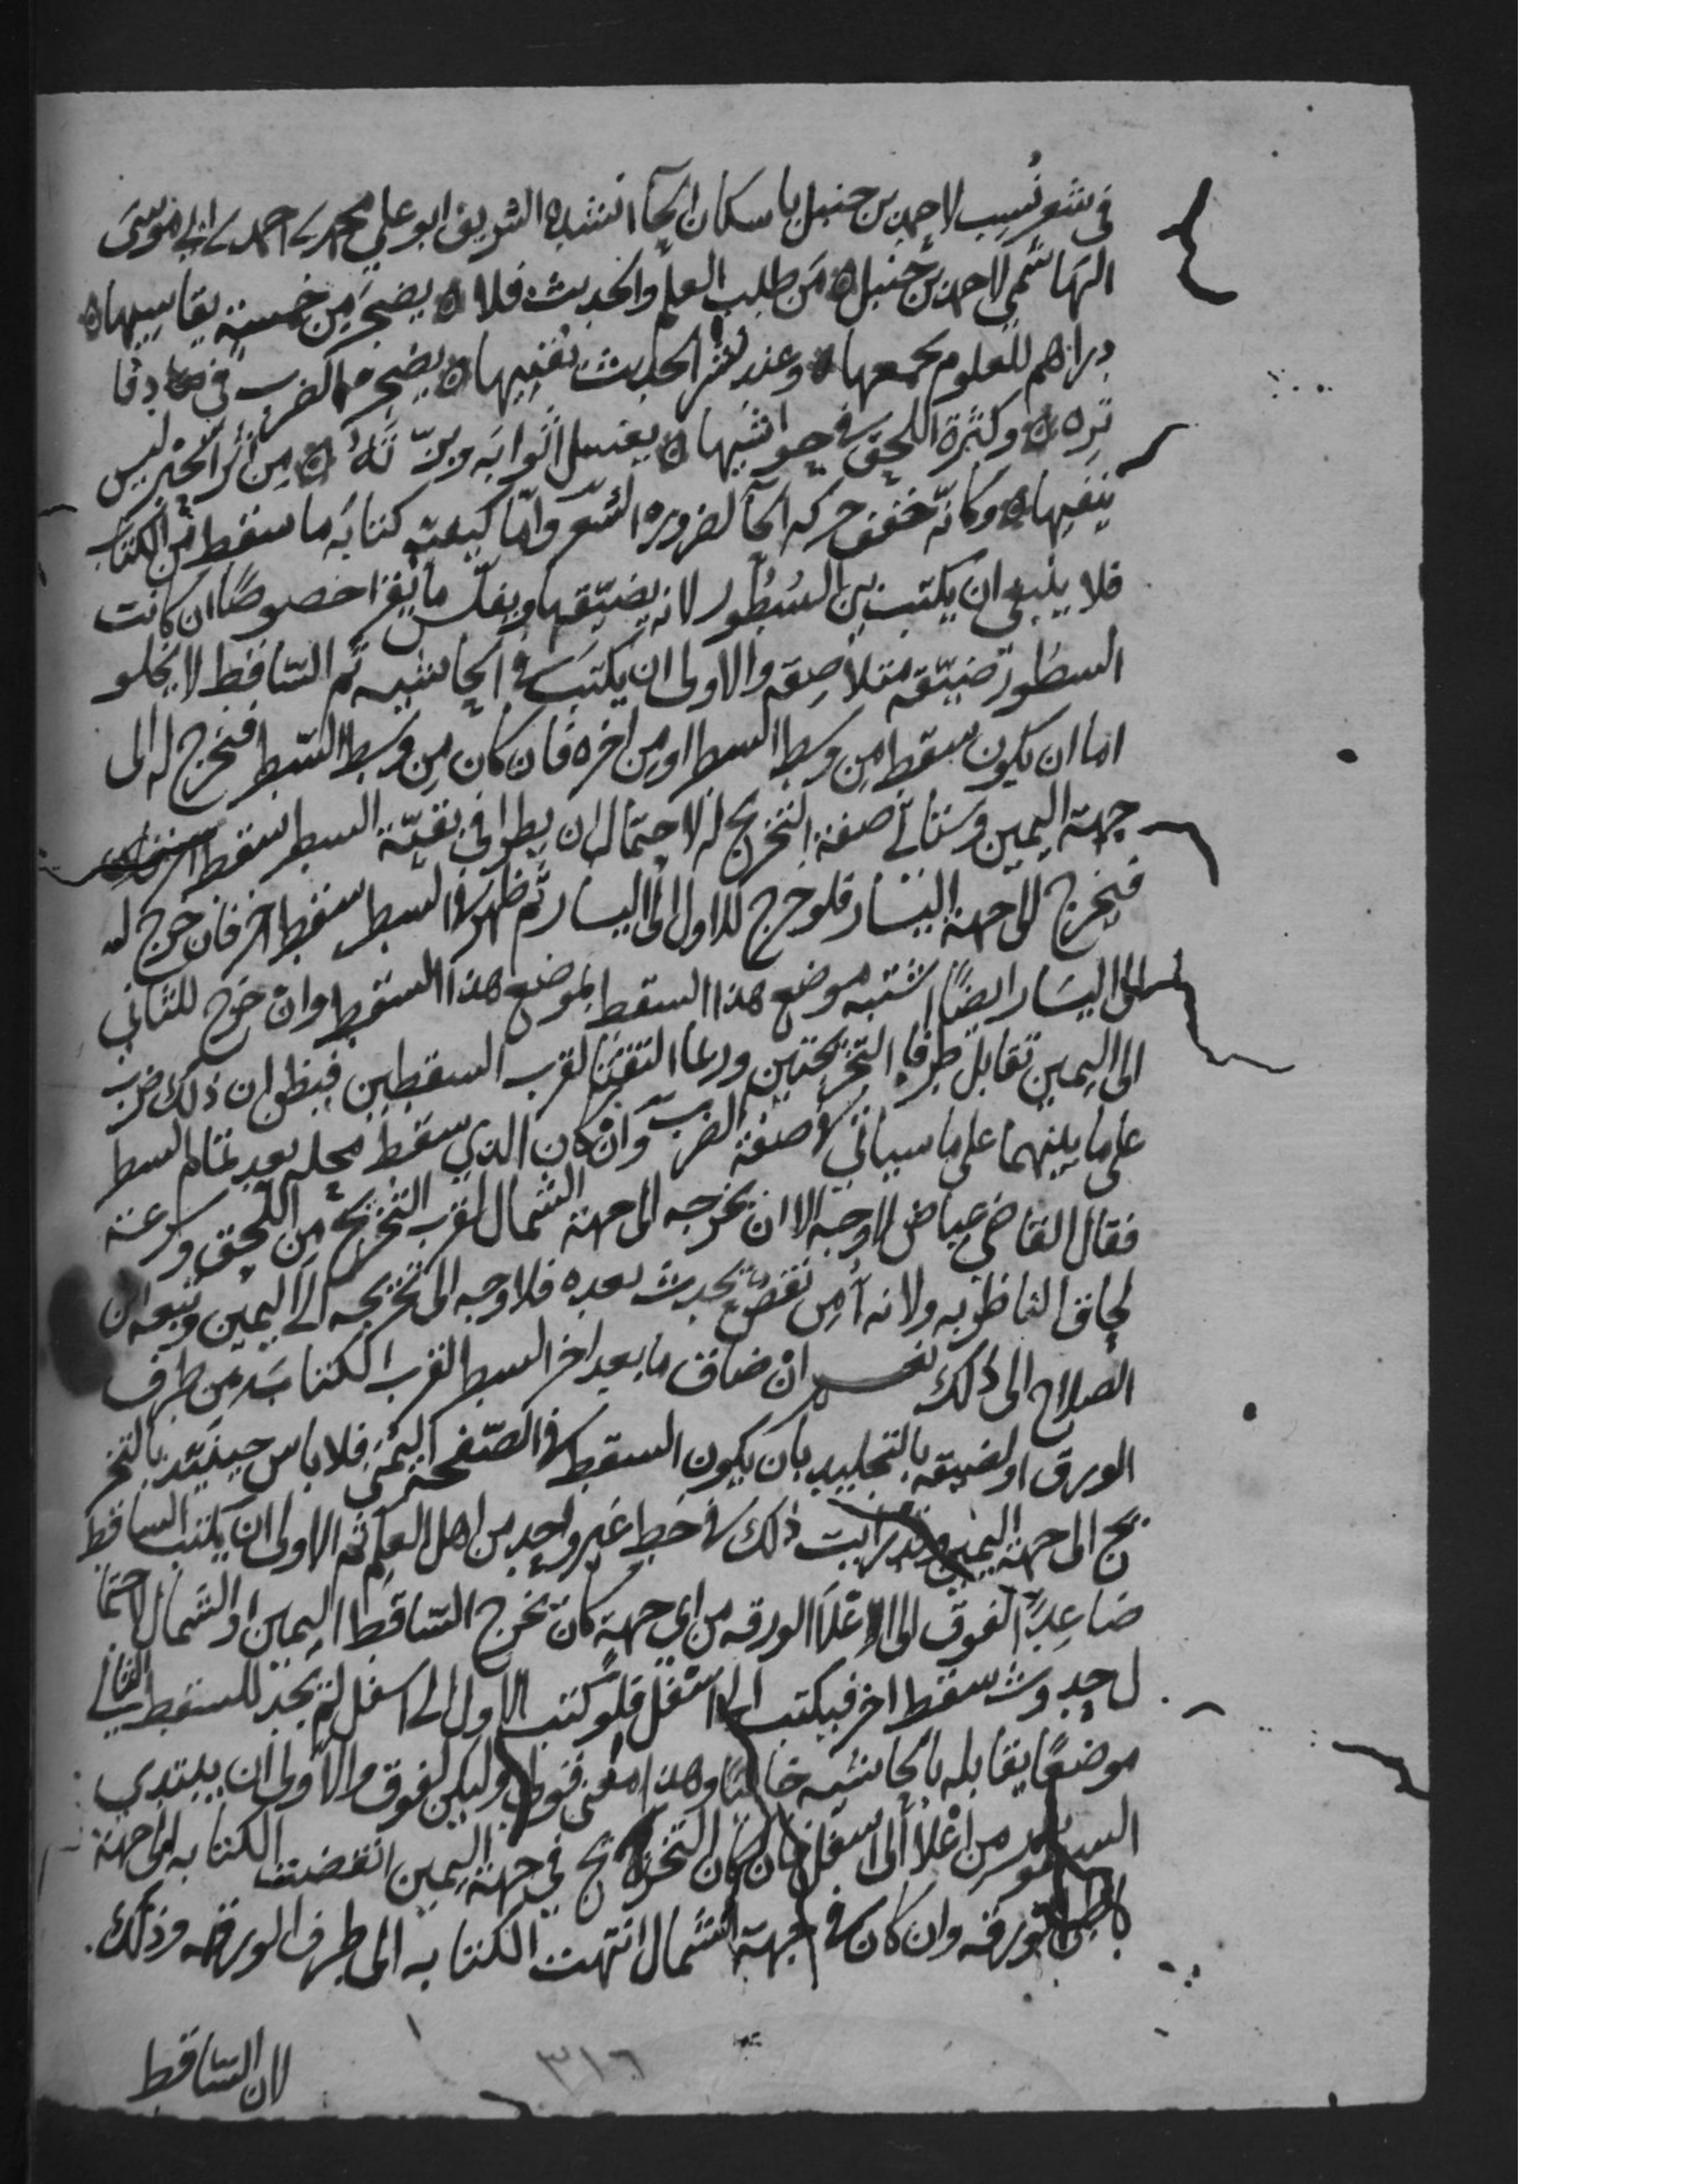 في شعر نسب لاحمد بن حنبل باسكان الحا انشده الشريف ابو علي محمد بن احمد بن ابي موسى
الهاشمي لاحمد بن حنبل ه من طلب العلم والحديث فلا ه يضجر من خمسة يقاسيها ه
دراهم للعلوم يجمعها ه وعند نشر الحديث يفنيها ه يضجره الضرب في دفا
تره ه وكثرة اللحق في حواشيها ه يغسل اثوابه وبزّته ه من اثر الحبر ليس
ينقيها ه وكانّه خفف حركه الحا لضروره الشعر وامّا كيفيّة كتابه ما سقط من الكتاب
فلا ينبغي ان يكتب بين السُطُور لانه يضيّقها ويغلّس ما يقرا خصوصًا ان كانت
السطور ضيّقه متلاصقه والاولى ان يكتب في الحاشيه ثم السّاقط لا يخلو
اما ان يكون سقط من وسط السطر او من اخره فان كان من وسط السّطر فيخرج له الى
جهة اليمين وستاتي صفة التخريج له لاحتمال ان يطرا في بقيّة السطر سقط اخر
فيخرج الى جهة اليسار فلو خرج للاول الى اليسار ثم ظهر في السطر سقط اخر فان خرج له
الى اليسار ايضًا اشتبه موضع هذا السقط بموضع هذا السقط وان خرج للثاني
الى اليمين تقابل طرفا التخريجتين وربما التقتا لقرب السقطين فيظن ان ذلك ضرب
على ما بينهما على ما سياتي في صفة الضرب وان كان الذي سقط محله بعد تمام السطر
فقال القاضي عياض لا وجه الا ان يخرجه الى جهة الشمال لقرب التخريج من اللحق وسرعة
لحاق الناظر به ولانه امن نقص يحدث بعده فلا وجه الى تخريجه الى اليمين وتبعه ابن
الصلاح الى ذلك نعم ان ضاق ما بعد اخر السطر لقرب الكتابه من طرف
الورق او لضيقه بالتجليد بان يكون السقط في الصّفحه اليمنى فلا باس حينئذ بالتخر
يج الى جهة اليمين وقد رايت ذلك في خط غير واحد من اهل العلم ثم الاولى ان يكتب الساقط
صاعدًا لفوق الى اعلا الورقه من اي جهة كان تخرج السّاقط اليمين او الشمال لاحتما
ل حدوث سقط اخر فيكتب الى اسفل فلو كتب الاول الى اسفل لم يجد للسقط الثاني
موضعًا يقابله بالحاشيه خاليًا وهذا معنى قوله وليكن لفوق والاولى ان يبتدي
السطور من اعلا الى اسفل فان كان التخريج في جهة اليمين انقضت الكتابه الى جهة
باطن الورقه وان كان في جهة الشمال انتهت الكتابه الى طرف الورقه وذلك
لان السّاقط